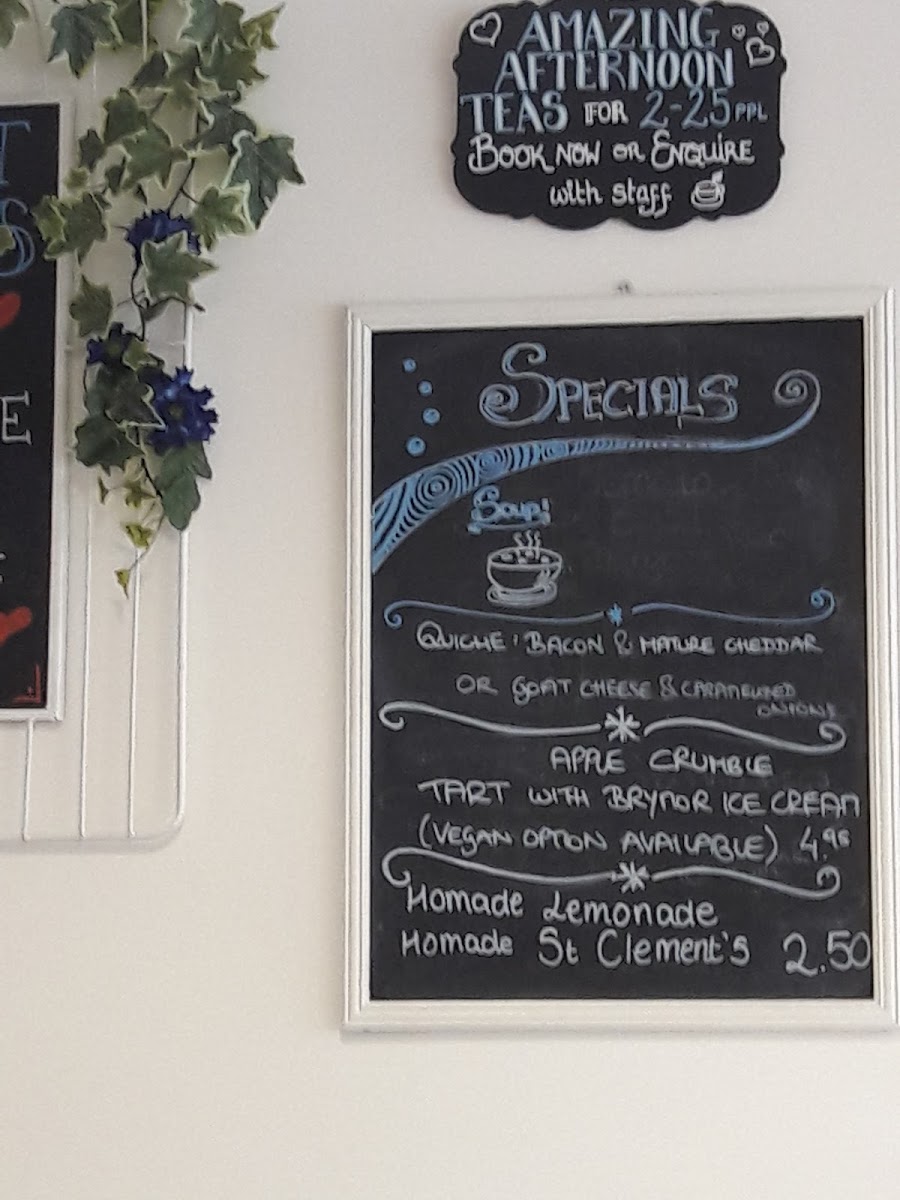 AMAZING
AFTERNOON
TEAS FOR 2-25 PPL
BOOK NOW OR ENQUIRE
with staff
SPECIALS
Soup!
QUICHE: BACON & MATURE CHEDDAR
OR GOAT CHEESE & CARAMELIZED
ONIONS
APPLE CRUMBLE
TART WITH BRYNOR ICE CREAM
(VEGAN OPTION AVAILABLE) 4.95
Homade Lemonade
Homade St Clement's 2.50
T
S
E